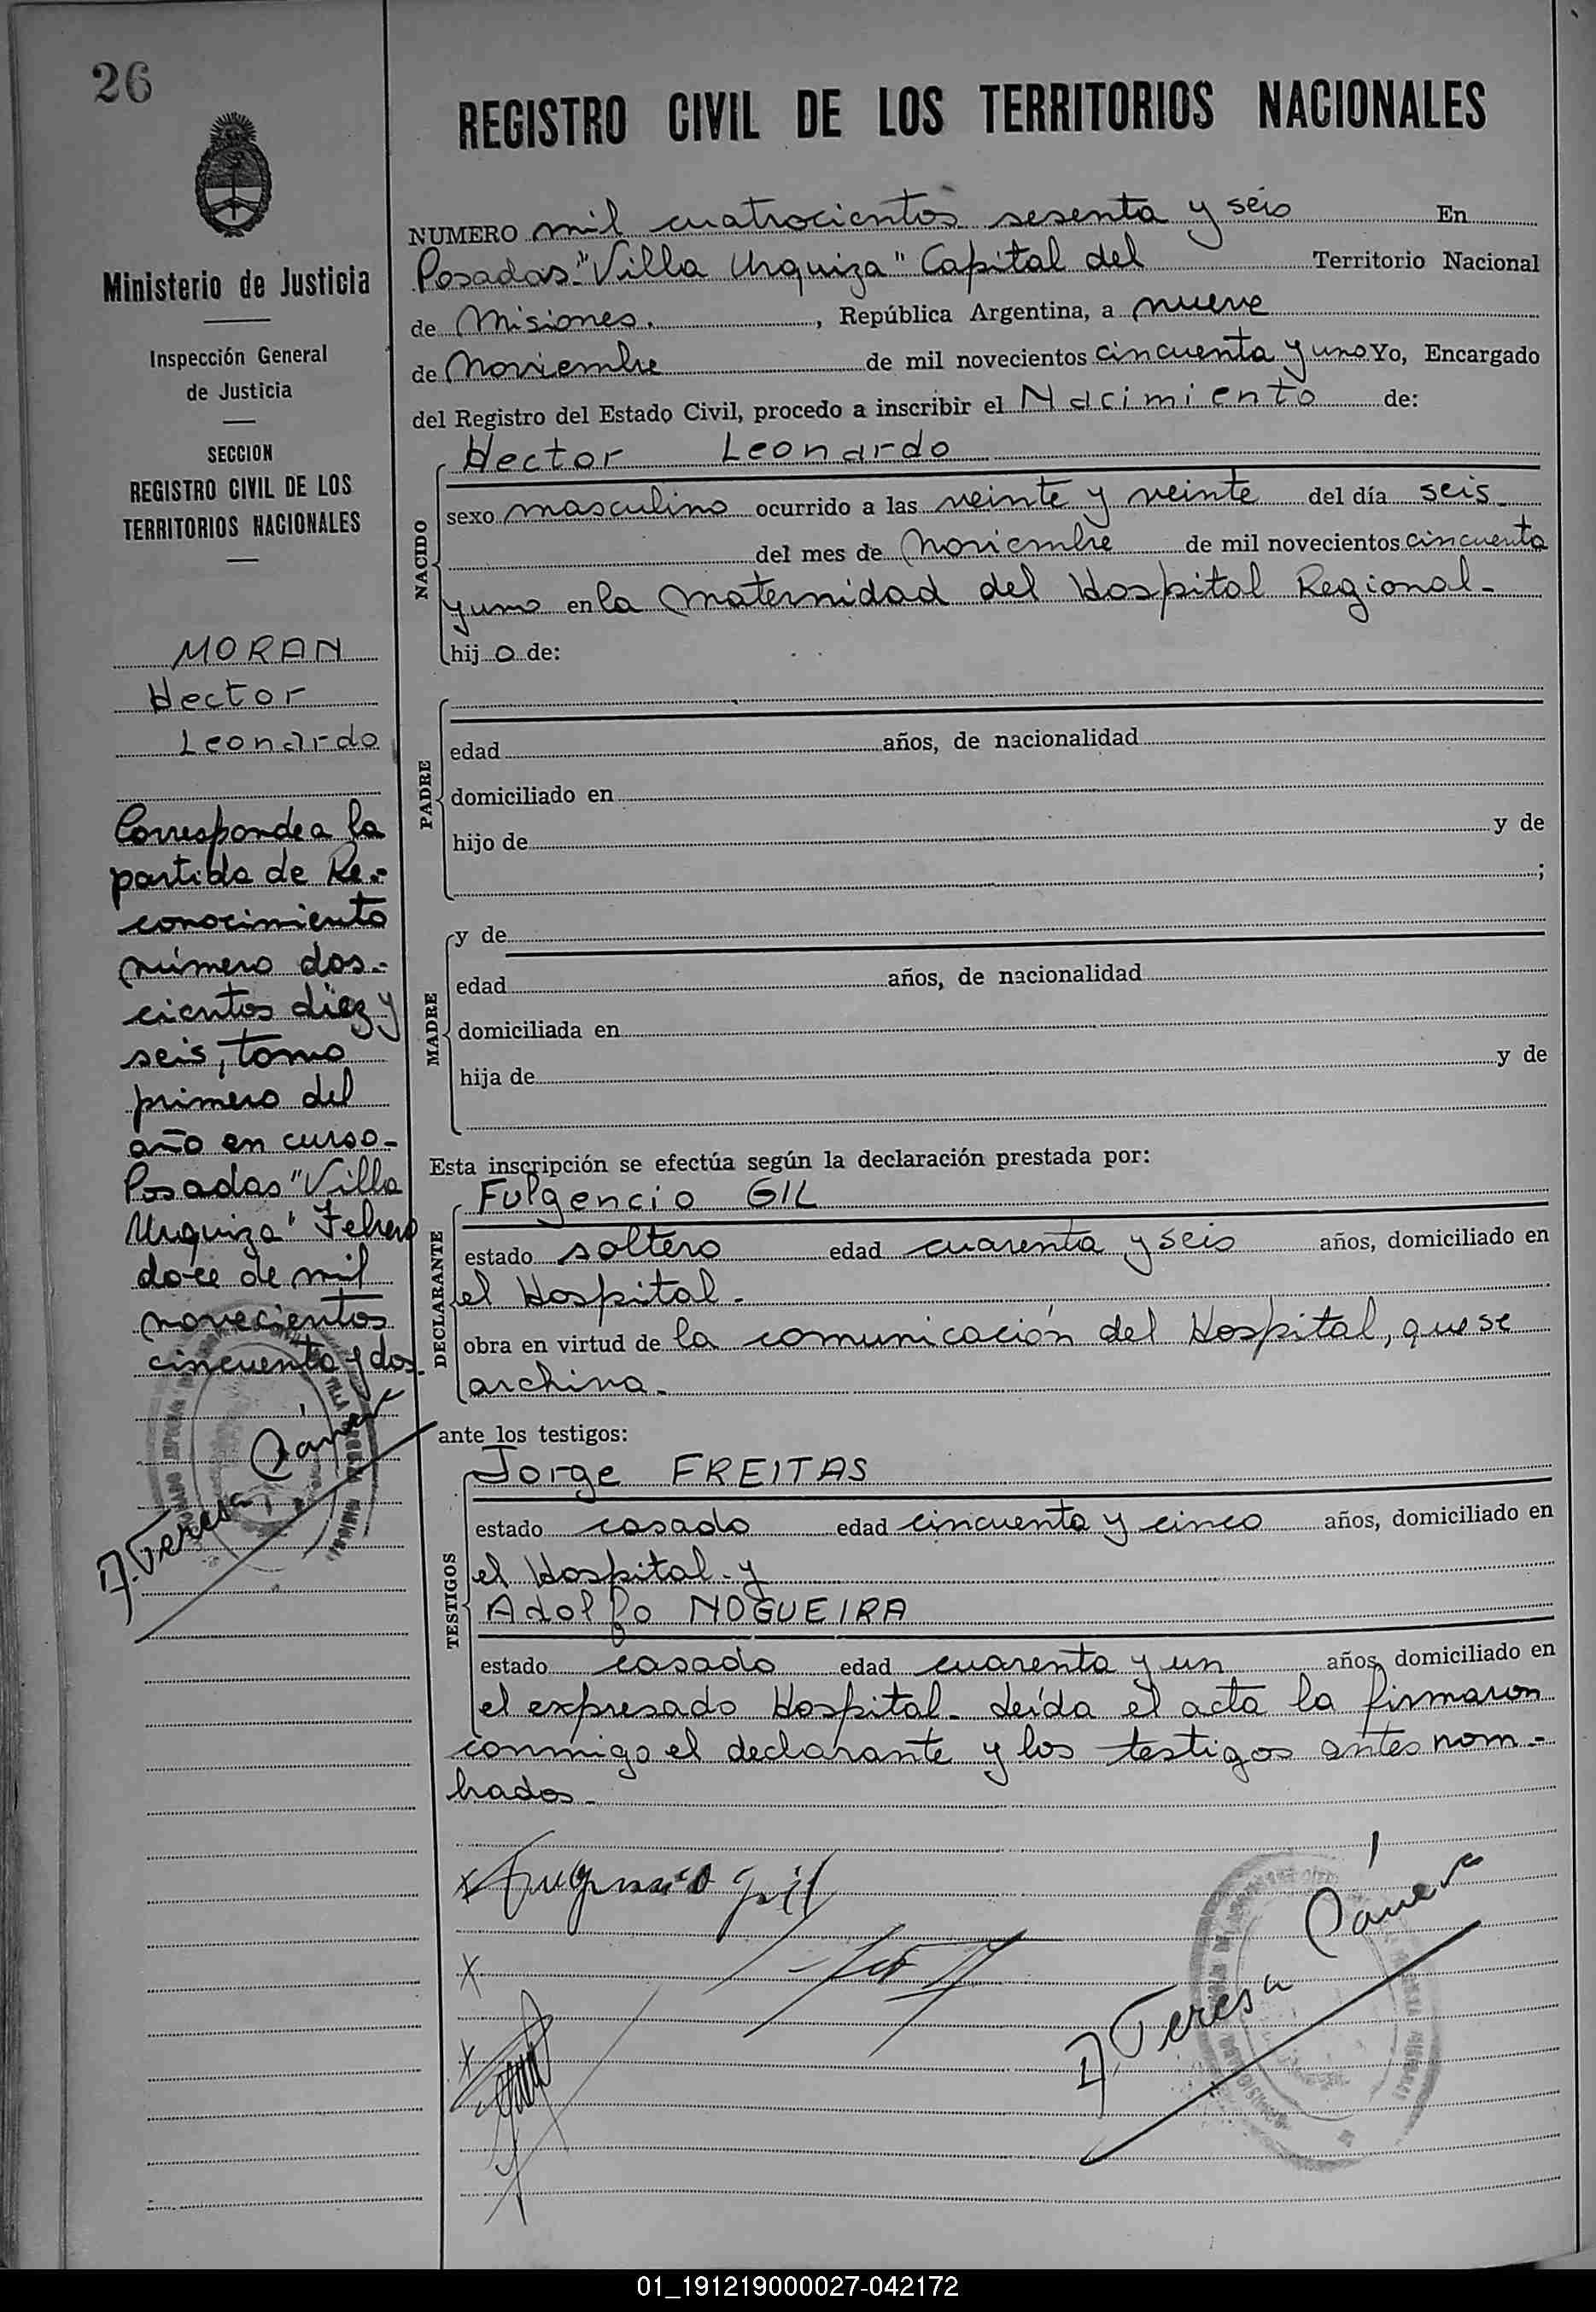 26
REGISTRO CIVIL DE LOS TERRITORIOS NACIONALES
Ministerio de Justicia
Inspección General
de Justicia
SECCION
REGISTRO CIVIL DE LOS
TERRITORIOS NACIONALES
MORAN
Hector
Leonardo
Corresponde a la
partida de Re-
conocimiento
número dos-
cientos diez y
seis, tomo
primero del
año en curso-
Posadas "Villa
Urquiza" Febrero
doce de mil
novecientos
cincuenta y dos.
NUMERO mil cuatrocientos sesenta y seis En
Posadas-"Villa Urquiza" Capital del Territorio Nacional
de Misiones. , República Argentina, a nueve
de Noviembre de mil novecientos cincuenta y uno Yo, Encargado
del Registro del Estado Civil, procedo a inscribir el Nacimiento de:
NACIDO
Hector Leonardo
sexo masculino ocurrido a las veinte y veinte del día seis-
del mes de Noviembre de mil novecientos cincuenta
y uno en la Maternidad del Hospital Regional-
hijo de:
PADRE
edad años, de nacionalidad
domiciliado en
hijo de y de
;
MADRE
y de
edad años, de nacionalidad
domiciliada en
hija de y de
Esta inscripción se efectúa según la declaración prestada por:
DECLARANTE
Fulgencio GIL
estado soltero edad cuarenta y seis años, domiciliado en
el Hospital-
obra en virtud de la comunicación del Hospital, que se
archiva-
ante los testigos:
TESTIGOS
Jorge FREITAS
estado casado edad cincuenta y cinco años, domiciliado en
el Hospital-y
Adolfo NOGUEIRA
estado casado edad cuarenta y un años, domiciliado en
el expresado Hospital- Leída el acta la firmaron
conmigo el declarante y los testigos antes nom-
brados-
01_191219000027-042172